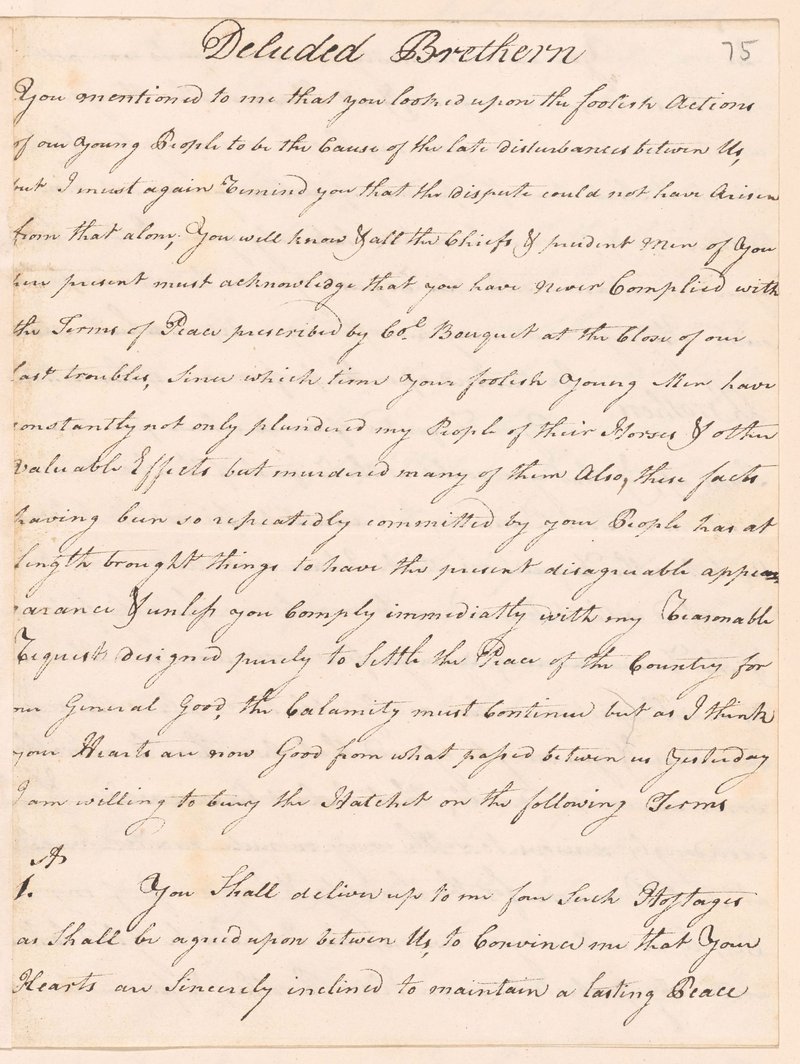 Deluded Brethern
75
You mentioned to me that you looked upon the foolish Actions
of our Young People to be the Cause of the late disturbances between Us,
but I must again Remind you that the dispute could not have Arisen
from that alone; You well know & all the Chiefs & prudent Men of You
here present must acknowledge that you have Never Complied with
the Terms of Peace prescribed by Col. Bouquet at the Close of our
last troubles, Since which time Your foolish Young Men have
constantly not only plundered my People of their Horses & other
Valuable Effects but murdered many of them Also, these facts
having been so repeatedly committed by your People has at
length brought things to have the present disagreable appea
=arance & unless you Comply immediatly with my Reasonable
Requests designed purely to Settle the Peace of the Country for
our General Good, the Calamity must Continue but as I think
your Hearts are now Good from what passed between us Yesterday
I am willing to bury the Hatchet on the following Terms
A
1. You Shall deliver up to me four Such Hostages
as Shall be agreed upon between Us, to Convince me that Your
Hearts are Sincerely inclined to maintain a lasting Peace